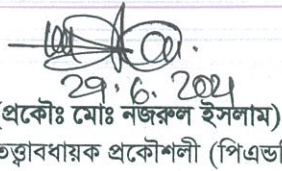 29.6.2021
(প্রকৌঃ মোঃ নজরুল ইসলাম)
তত্ত্বাবধায়ক প্রকৌশলী (পিএন্ড